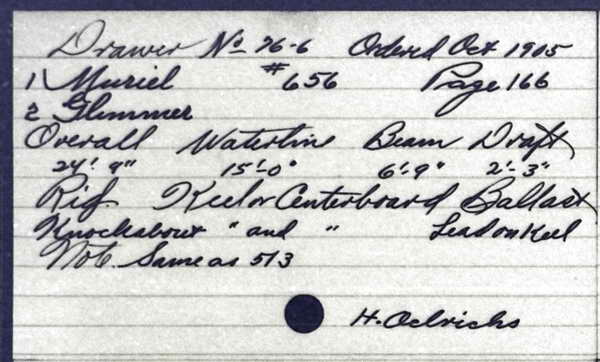 Drawer No 76-6 Ordered Oct 1905
1 Muriel #656 Page 166
2 Glimmer
Overall Waterline Beam Draft
24'. 9" 15'-0" 6'-9" 2'-3"
Rig. Keel or Centerboard Ballast
Knockabout " and " Lead on Keel
Not. Same as 513
H. Oelrichs